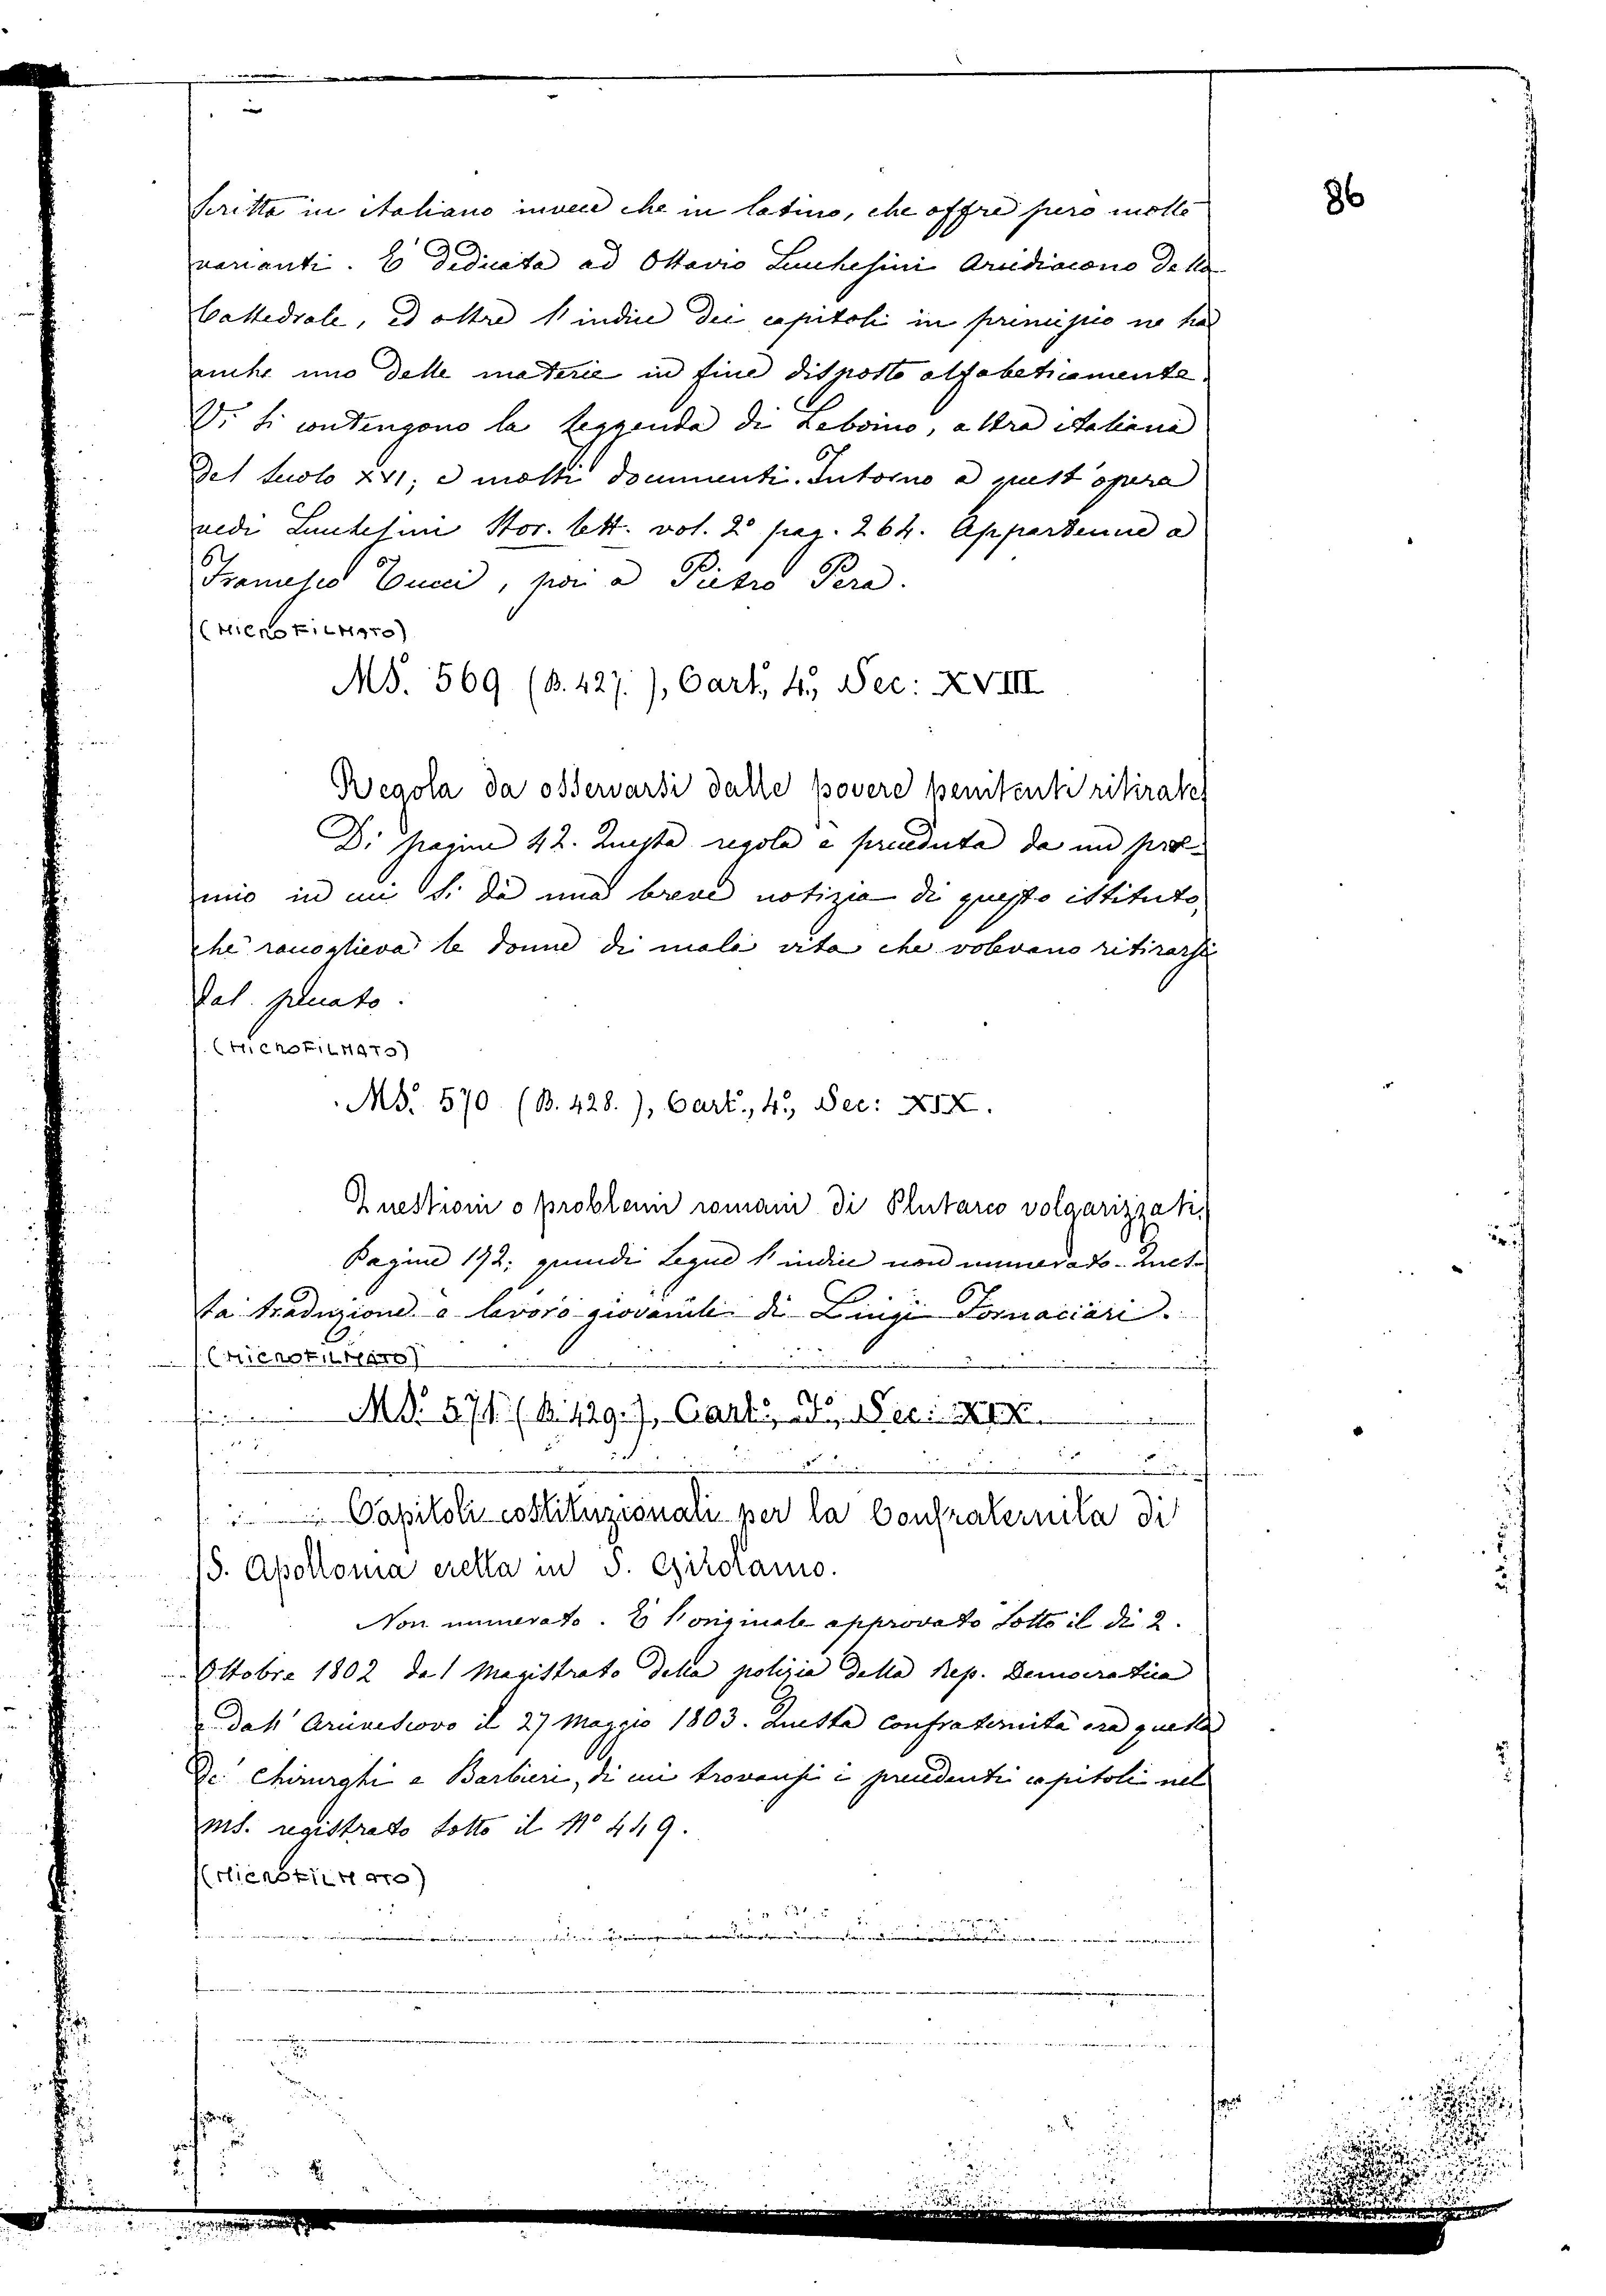 86
scritta in italiano invece che in latino, che offre però molte
varianti. È dedicata ad Ottavio Lucchesini Arcidiacono della
Cattedrale, ed oltre l'indice dei capitoli in principio ne ha
anche uno delle materie in fine disposto alfabeticamente.
Vi si contengono la leggenda di Leboino, altra italiana
del secolo XVI; e molti documenti. Intorno a quest'opera
vedi Lucchesini Stor. lett. vol. 2º pag. 264. Appartenne a
Francesco Cucci, poi a Pietro Pera.
(MICROFILMATO)
MS. 569 (B. 427.), Cart., 4º, Sec: XVIII
Regola da osservarsi dalle povere penitenti ritirate
Di pagine 42. Questa regola è preceduta da un proe-
mio in cui si dà una breve notizia di questo istituto,
che raccoglieva le donne di mala vita che volevano ritirarsi
dal peccato.
(MICROFILMATO)
MS. 570 (B. 428.), Cart., 4º, Sec: XIX.
Questioni o problemi romani di Plutarco volgarizzati.
Pagine 192; quindi segue l'indice non numerato. Ques-
ta traduzione è lavoro giovanile di Luigi Fornaciari.
(MICROFILMATO)
MS. 571 (B. 429.), Cart., Sec: XIX
Capitoli costituzionali per la Confraternita di
S. Apollonia eretta in S. Girolamo.
Non numerato. È l'originale approvato sotto il dì 2.
Ottobre 1802 dal Magistrato della polizia della Rep. Democratica
e dall' Arcivescovo il 27 Maggio 1803. Questa confraternità era quella
de' Chirurghi e Barbieri, di cui trovansi i precedenti capitoli nel
ms. registrato sotto il Nº 449.
(MICROFILMATO)